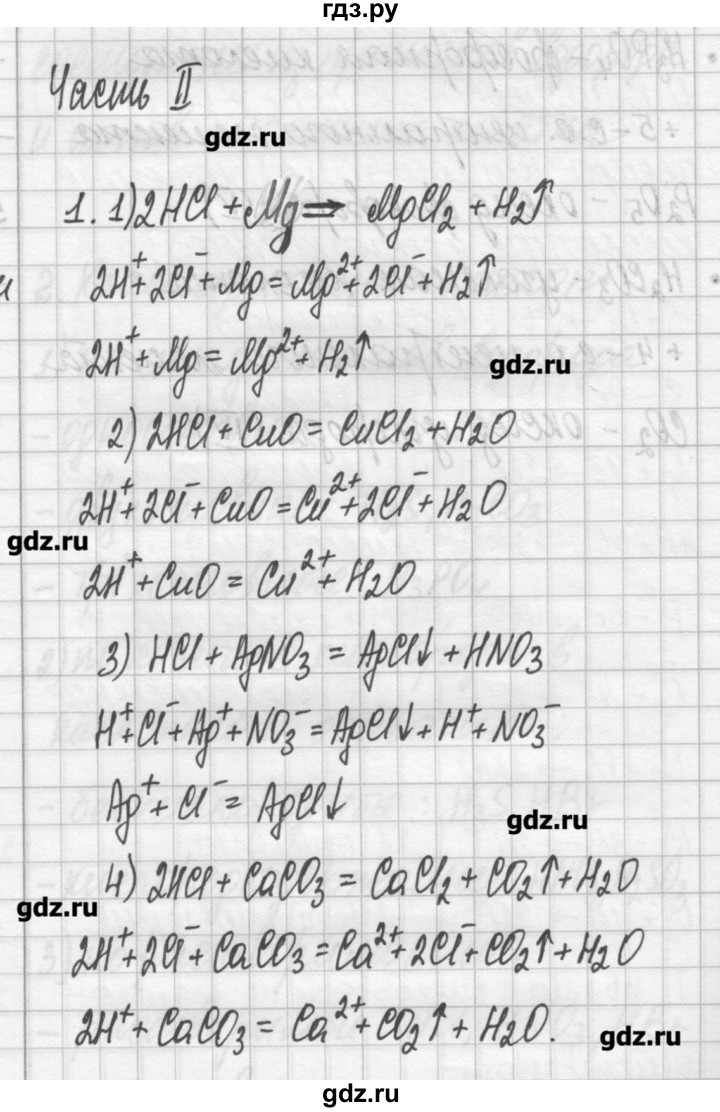 гдз.ру
Часть II
gdz.ru
1. 1) 2HCl + Mg ⇒ MgCl₂ + H₂↑
2H⁺ + 2Cl⁻ + Mg = Mg²⁺ + 2Cl⁻ + H₂↑
2H⁺ + Mg = Mg²⁺ + H₂↑
gdz.ru
2) 2HCl + CuO = CuCl₂ + H₂O
2H⁺ + 2Cl⁻ + CuO = Cu²⁺ + 2Cl⁻ + H₂O
gdz.ru
2H⁺ + CuO = Cu²⁺ + H₂O
3) HCl + AgNO₃ = AgCl↓ + HNO₃
H⁺ + Cl⁻ + Ag⁺ + NO₃⁻ = AgCl↓ + H⁺ + NO₃⁻
Ag⁺ + Cl⁻ = AgCl↓
gdz.ru
4) 2HCl + CaCO₃ = CaCl₂ + CO₂↑ + H₂O
gdz.ru
2H⁺ + 2Cl⁻ + CaCO₃ = Ca²⁺ + 2Cl⁻ + CO₂↑ + H₂O
2H⁺ + CaCO₃ = Ca²⁺ + CO₂↑ + H₂O.
gdz.ru
gdz.ru